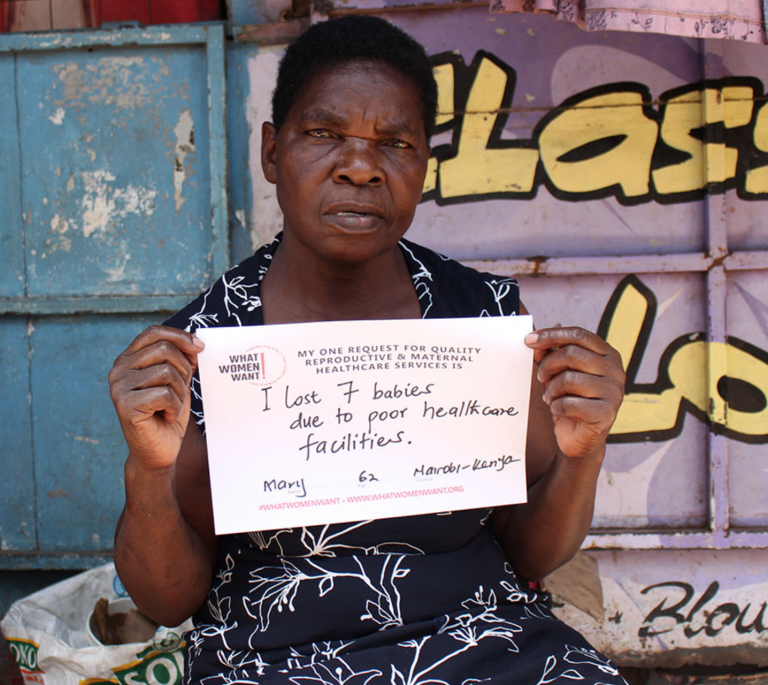 CLass
Lo
WHAT
WOMEN
WANT!
MY ONE REQUEST FOR QUALITY
REPRODUCTIVE & MATERNAL
HEALTHCARE SERVICES IS
I lost 7 babies
due to poor healthcare
facilities.
Mary 62 Nairobi-Kenya
#WHATWOMENWANT • WWW.WHATWOMENWANT.ORG
Blow